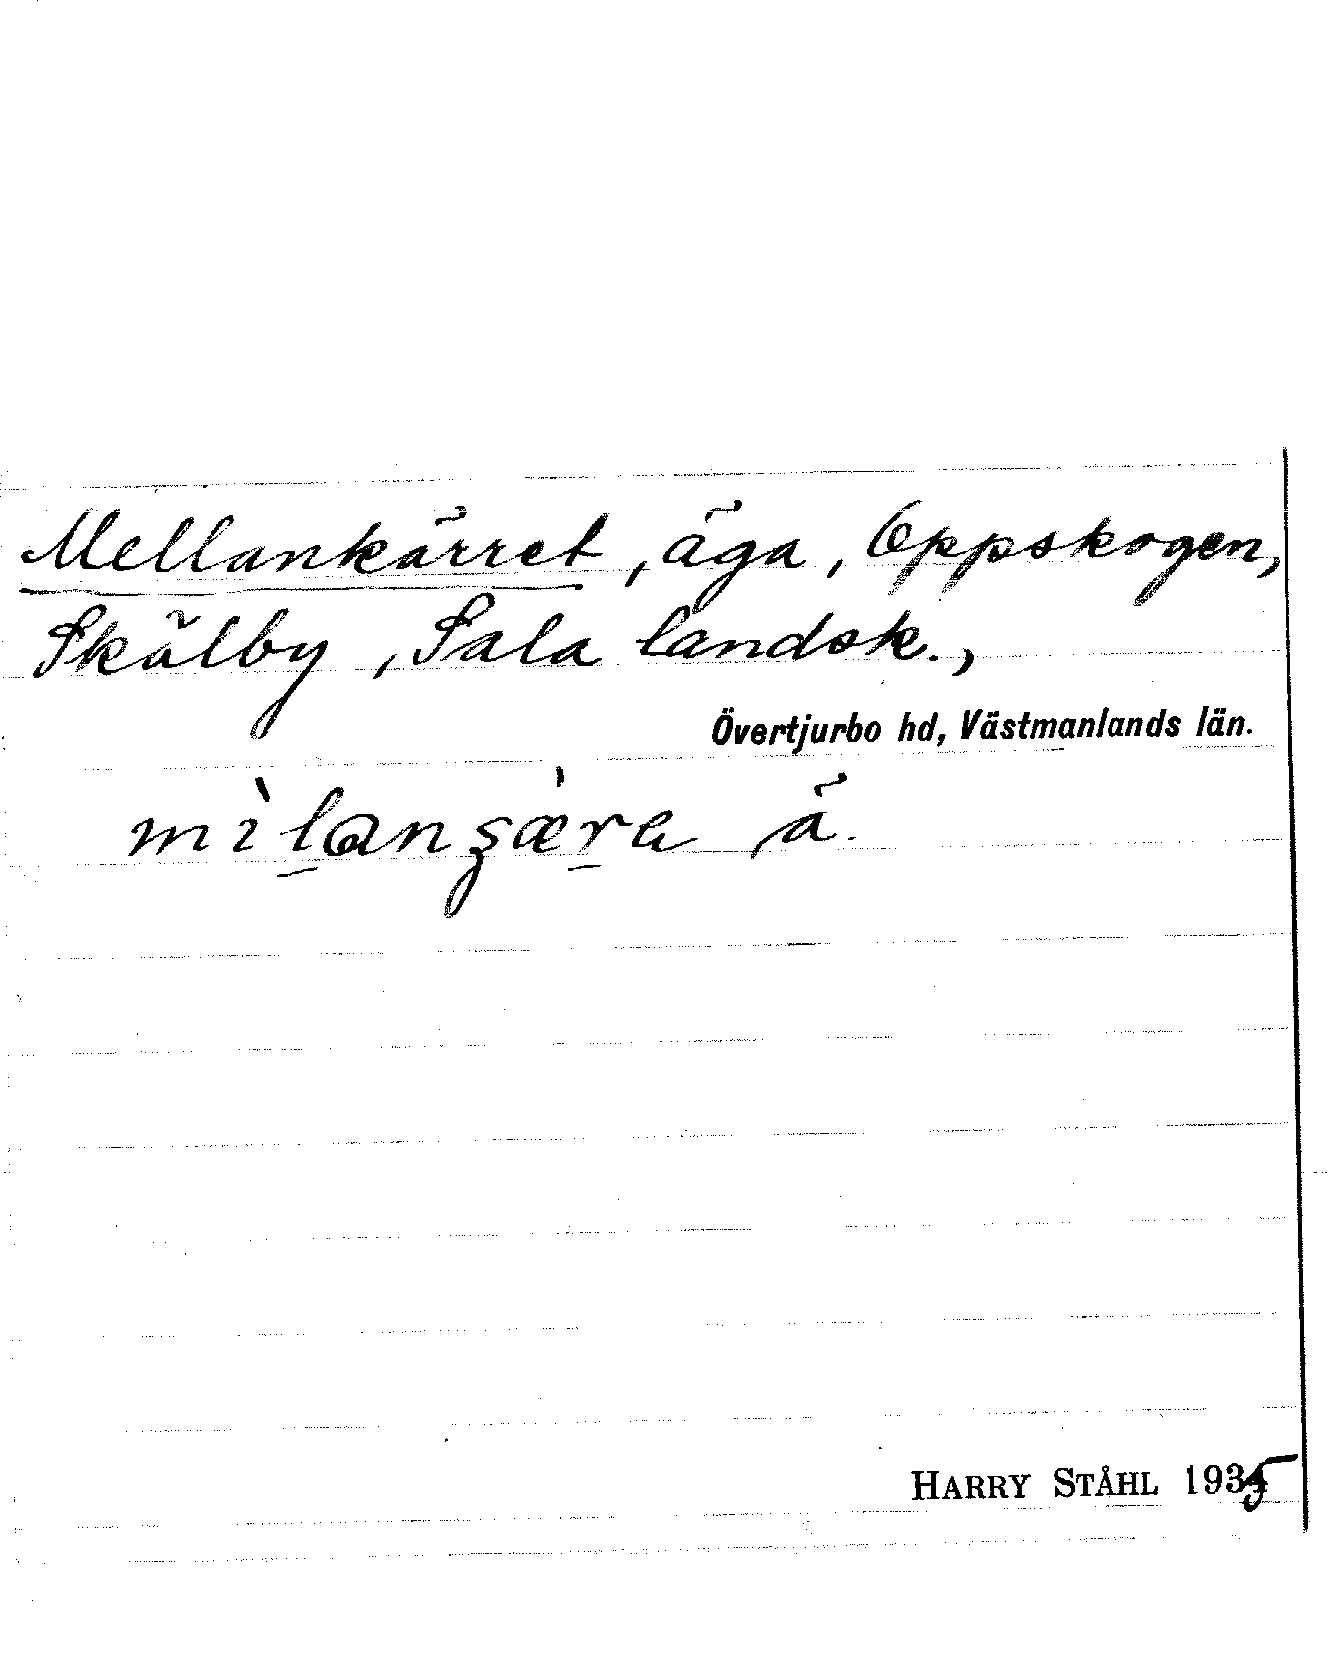 Mellankärret, äga, Oppskogen,
Skälby, Sala landsk.,
Övertjurbo hd, Västmanlands län.
mìlanʂæ̀ra, ä.
HARRY STÅHL 1935